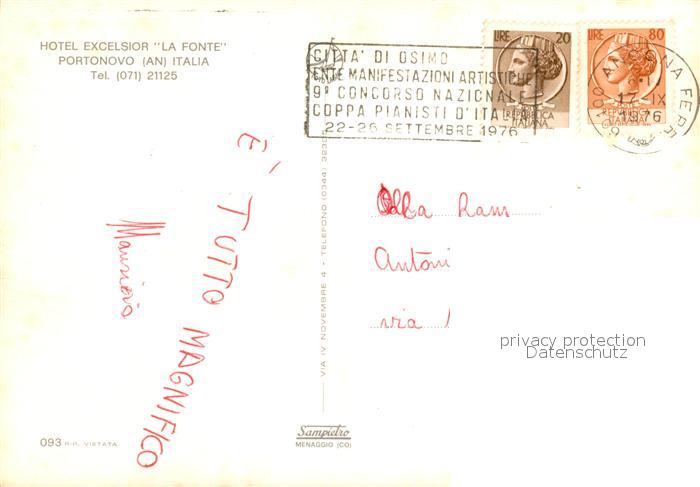 HOTEL EXCELSIOR "LA FONTE"
PORTONOVO (AN) ITALIA
Tel. (071) 21125
CITTA' DI OSIMO
ENTE MANIFESTAZIONI ARTISTICHE
9° CONCORSO NAZIONALE
COPPA PIANISTI D'ITALIA
22-26 SETTEMBRE 1976
LIRE 20
REPUBBLICA
ITALIANA
LIRE 80
REPUBBLICA
ITALIANA
60100 ANCONA FERR.
17-IX
1976
È TUTTO MAGNIFICO
Maurizio
VIA IV NOVEMBRE 4 - TELEFONO (0344)
Alla
Antoni
via
privacy protection
Datenschutz
093 R.P. VIETATA
Sampietro
MENAGGIO (CO)